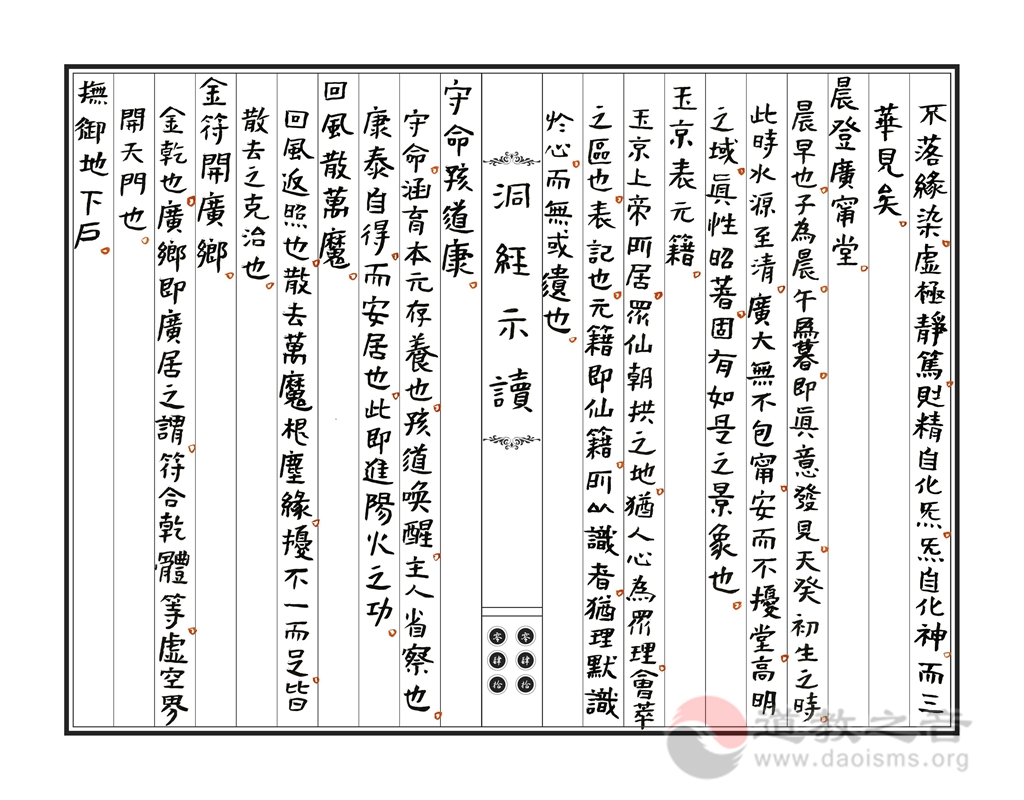 不落緣染虛極靜篤則精自化炁炁自化神而三
華見矣
晨登廣甯堂
晨早也子為晨午為暮即眞意發見天癸初生之時
此時水源至清廣大無不包甯安而不擾堂高明
之域眞性昭著固有如是之景象也
玉京表元籍
玉京上帝所居眾仙朝拱之地猶人心為眾理會萃
之區也表記也元籍即仙籍所以識者猶理默識
於心而無或遺也
洞經示讀
零肆拾
零肆拾
守命孩道康
守命涵育本元存養也孩道喚醒主人省察也
康泰自得而安居也此即進陽火之功
回風散萬魔
回風返照也散去萬魔根塵緣擾不一而足皆
散去之克治也
金符開廣鄉
金乾也廣鄉即廣居之謂符合乾體等虛空界
開天門也
撫御地下戶
道教之音
www.daoisms.org